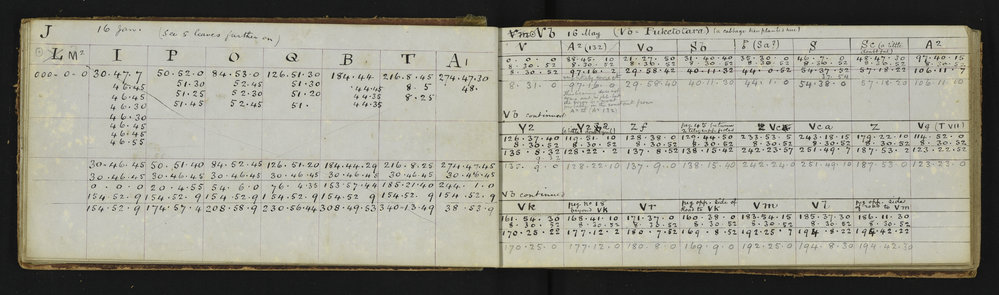 J 16 Jan. (See 5 leaves farther on)
L M² I P O Q B T A₁
000-0-0 30.47.7 50.52.0 84.53.0 126.51.30 184.44 216.8.45 274.47.30
46.45 51.30 52.45 51.30 44.45 8.5 48.
46.45 51.45 52.30 51.20 44.35 8.25
46.30 51.45 52.45 51. 44.35
46.30
46.45
46.45
46.55
30.46.45 50.51.40 84.52.45 126.51.20 184.44.29 216.8.25 274.47.45
30.46.45 30.46.45 30.46.45 30.46.45 30.46.45 30.46.45 30.46.45
0.0.0 20.4.55 54.6.0 76.4.35 153.57.44 185.21.40 244.1.0
154.52.9 154.52.9 154.52.9 154.52.9 154.52.9 154.52.9 154.52.9
154.52.9 174.57.4 208.58.9 230.56.44 308.49.53 340.13.49 38.53.9
Vm & Vō 16 May (Vō - Puketotara) (a cabbage tree planted here)
V A² (132) Vo So β (Sa?) S Sc (a little doubtful) A²
0.0.0 88.45.10 21.27.50 31.40.40 35.30.0 46.7.0 48.47.30 97.40.15
8.30.52 8.30.52 8.30.52 8.30.52 8.30.52 8.30.52 8.30.52
8.30.52 97.16.2 29.58.42 40.11.32 44.0.52 54.37.52 57.18.22 106.11.7
8.31.0 97.16.0 29.58.40 40.11.30 44.1.0 54.38.0 57.18.20 106.11.10
Vō continued
V2 Zf Vca Z Vg (T VII)
126.37.40 110.51.10 128.38.0 129.44.50 233.53.5 243.18.15 179.22.10 114.52.0
8.30.52 8.30.52 8.30.52 8.30.52 8.30.52 8.30.52 8.30.52 8.30.52
135.8.32 128.22.2 137.8.52 138.15.42 242.23.57 251.49.7 187.53.2 123.22.52
135.9.0 128.22.0 137.9.0 138.15.40 242.24.0 251.49.10 187.53.0 123.23.0
Vō continued
Vk peg no 18 beyond Vk Vr peg opp. side of road to Vk Vm Vl peg opp. side road to Vm
161.54.30 168.41.10 171.37.0 160.38.0 183.34.15 185.37.30 186.11.30
8.30.52 8.30.52 8.30.52 8.30.52 8.30.52 8.30.52 8.30.52
170.25.22 177.12.2 180.7.52 169.8.52 192.25.7 194.8.22 194.42.22
170.25.0 177.12.0 180.8.0 169.9.0 192.25.0 194.8.30 194.42.30